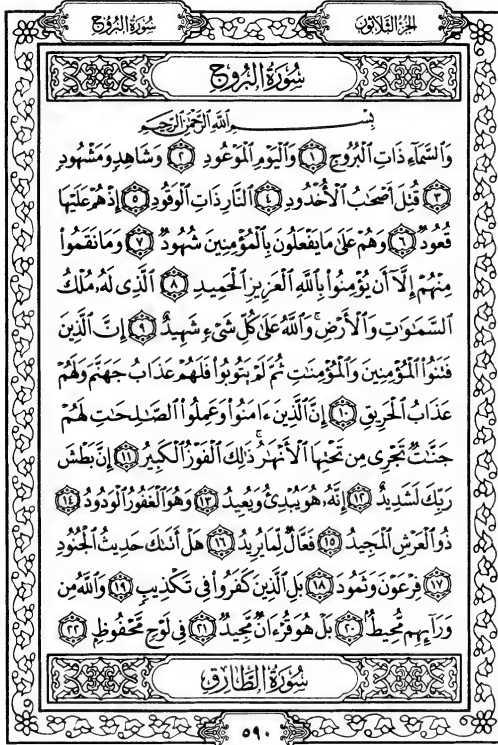 سُورَةُ البُرُوج
الجُزْءُ الثَّلَاثُونَ
سُورَةُ البُرُوج
بِسْمِ ٱللَّهِ ٱلرَّحْمَٰنِ ٱلرَّحِيمِ
وَٱلسَّمَآءِ ذَاتِ ٱلْبُرُوجِ ١ وَٱلْيَوْمِ ٱلْمَوْعُودِ ٢ وَشَاهِدٍ وَمَشْهُودٍ
٣ قُتِلَ أَصْحَٰبُ ٱلْأُخْدُودِ ٤ ٱلنَّارِ ذَاتِ ٱلْوَقُودِ ٥ إِذْ هُمْ عَلَيْهَا
قُعُودٌ ٦ وَهُمْ عَلَىٰ مَا يَفْعَلُونَ بِٱلْمُؤْمِنِينَ شُهُودٌ ٧ وَمَا نَقَمُوا۟
مِنْهُمْ إِلَّآ أَن يُؤْمِنُوا۟ بِٱللَّهِ ٱلْعَزِيزِ ٱلْحَمِيدِ ٨ ٱلَّذِى لَهُۥ مُلْكُ
ٱلسَّمَٰوَٰتِ وَٱلْأَرْضِ ۚ وَٱللَّهُ عَلَىٰ كُلِّ شَىْءٍ شَهِيدٌ ٩ إِنَّ ٱلَّذِينَ
فَتَنُوا۟ ٱلْمُؤْمِنِينَ وَٱلْمُؤْمِنَٰتِ ثُمَّ لَمْ يَتُوبُوا۟ فَلَهُمْ عَذَابُ جَهَنَّمَ وَلَهُمْ
عَذَابُ ٱلْحَرِيقِ ١٠ إِنَّ ٱلَّذِينَ ءَامَنُوا۟ وَعَمِلُوا۟ ٱلصَّٰلِحَٰتِ لَهُمْ
جَنَّٰتٌ تَجْرِى مِن تَحْتِهَا ٱلْأَنْهَٰرُ ۚ ذَٰلِكَ ٱلْفَوْزُ ٱلْكَبِيرُ ١١ إِنَّ بَطْشَ
رَبِّكَ لَشَدِيدٌ ١٢ إِنَّهُۥ هُوَ يُبْدِئُ وَيُعِيدُ ١٣ وَهُوَ ٱلْغَفُورُ ٱلْوَدُودُ ١٤
ذُو ٱلْعَرْشِ ٱلْمَجِيدُ ١٥ فَعَّالٌ لِّمَا يُرِيدُ ١٦ هَلْ أَتَىٰكَ حَدِيثُ ٱلْجُنُودِ
١٧ فِرْعَوْنَ وَثَمُودَ ١٨ بَلِ ٱلَّذِينَ كَفَرُوا۟ فِى تَكْذِيبٍ ١٩ وَٱللَّهُ مِن
وَرَآئِهِم مُّحِيطٌۢ ٢٠ بَلْ هُوَ قُرْءَانٌ مَّجِيدٌ ٢١ فِى لَوْحٍ مَّحْفُوظٍۭ ٢٢
سُورَةُ الطَّارِق
٥٩٠